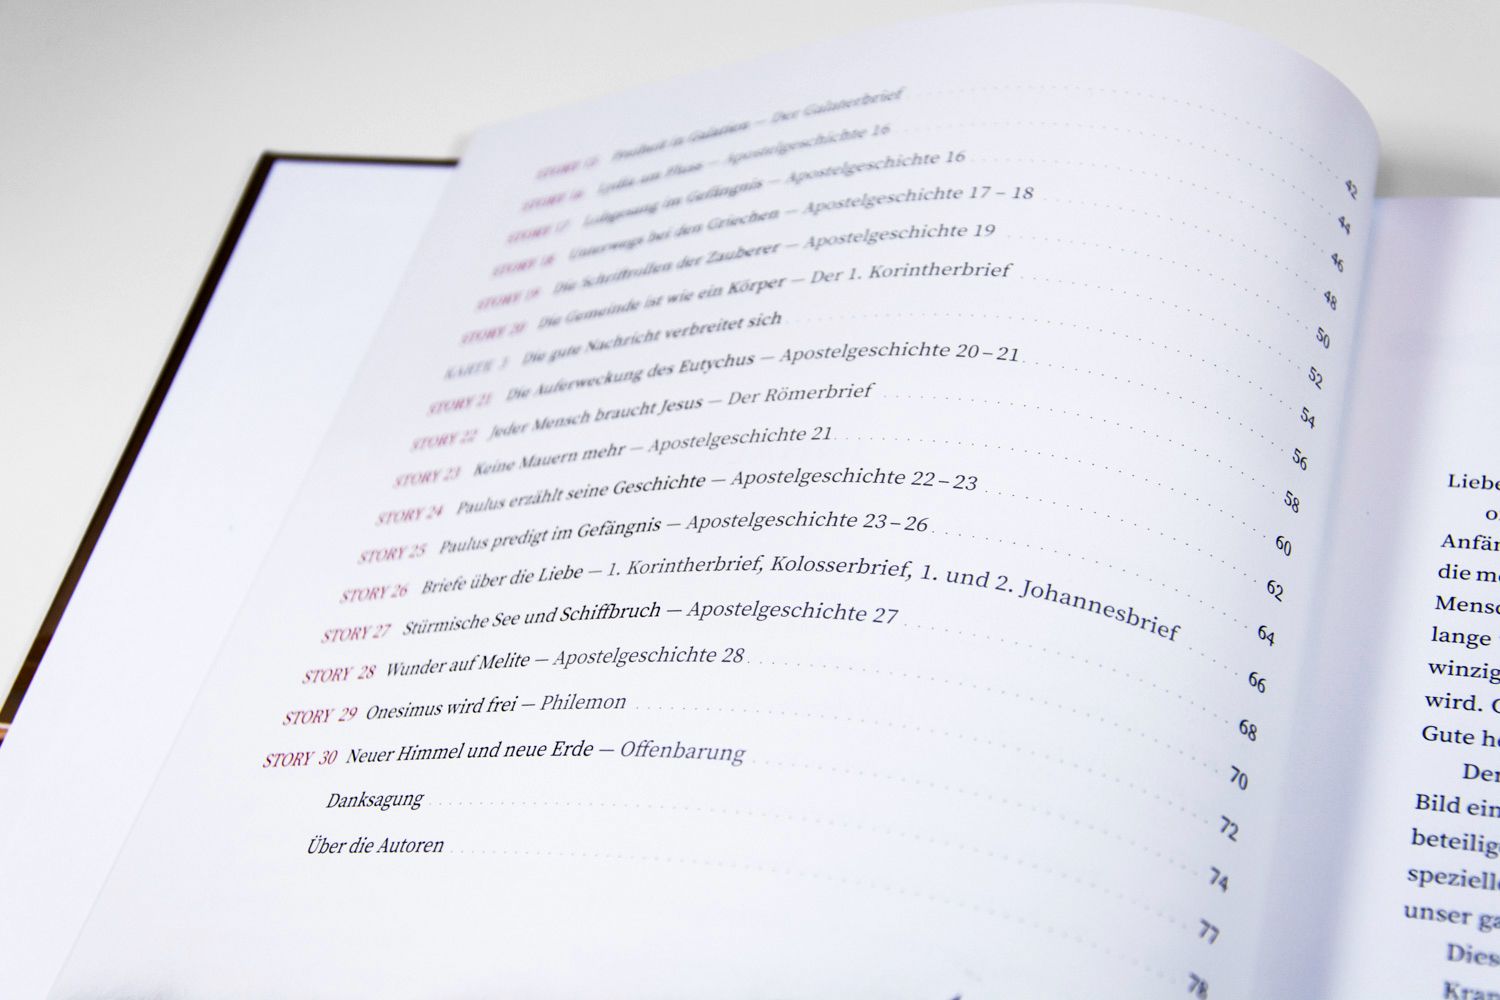 STORY 15 Freiheit in Galatien — Der Galaterbrief 42
STORY 16 Lydia am Fluss — Apostelgeschichte 16 44
STORY 17 Lobgesang im Gefängnis — Apostelgeschichte 16 46
STORY 18 Unterwegs bei den Griechen — Apostelgeschichte 17 – 18 48
STORY 19 Die Schriftrollen der Zauberer — Apostelgeschichte 19 50
STORY 20 Die Gemeinde ist wie ein Körper — Der 1. Korintherbrief 52
KARTE 3 Die gute Nachricht verbreitet sich 54
STORY 21 Die Auferweckung des Eutychus — Apostelgeschichte 20 – 21 56
STORY 22 Jeder Mensch braucht Jesus — Der Römerbrief 58
STORY 23 Keine Mauern mehr — Apostelgeschichte 21 60
STORY 24 Paulus erzählt seine Geschichte — Apostelgeschichte 22 – 23 62
STORY 25 Paulus predigt im Gefängnis — Apostelgeschichte 23 – 26 64
STORY 26 Briefe über die Liebe — 1. Korintherbrief, Kolosserbrief, 1. und 2. Johannesbrief 66
STORY 27 Stürmische See und Schiffbruch — Apostelgeschichte 27 68
STORY 28 Wunder auf Melite — Apostelgeschichte 28 70
STORY 29 Onesimus wird frei — Philemon 72
STORY 30 Neuer Himmel und neue Erde — Offenbarung 74
Danksagung 77
Über die Autoren 78
Liebe
o
Anfän
die me
Mensc
lange
winzig
wird. G
Gute he
Der
Bild ein
beteilig
speziell
unser ga
Dies
Kran